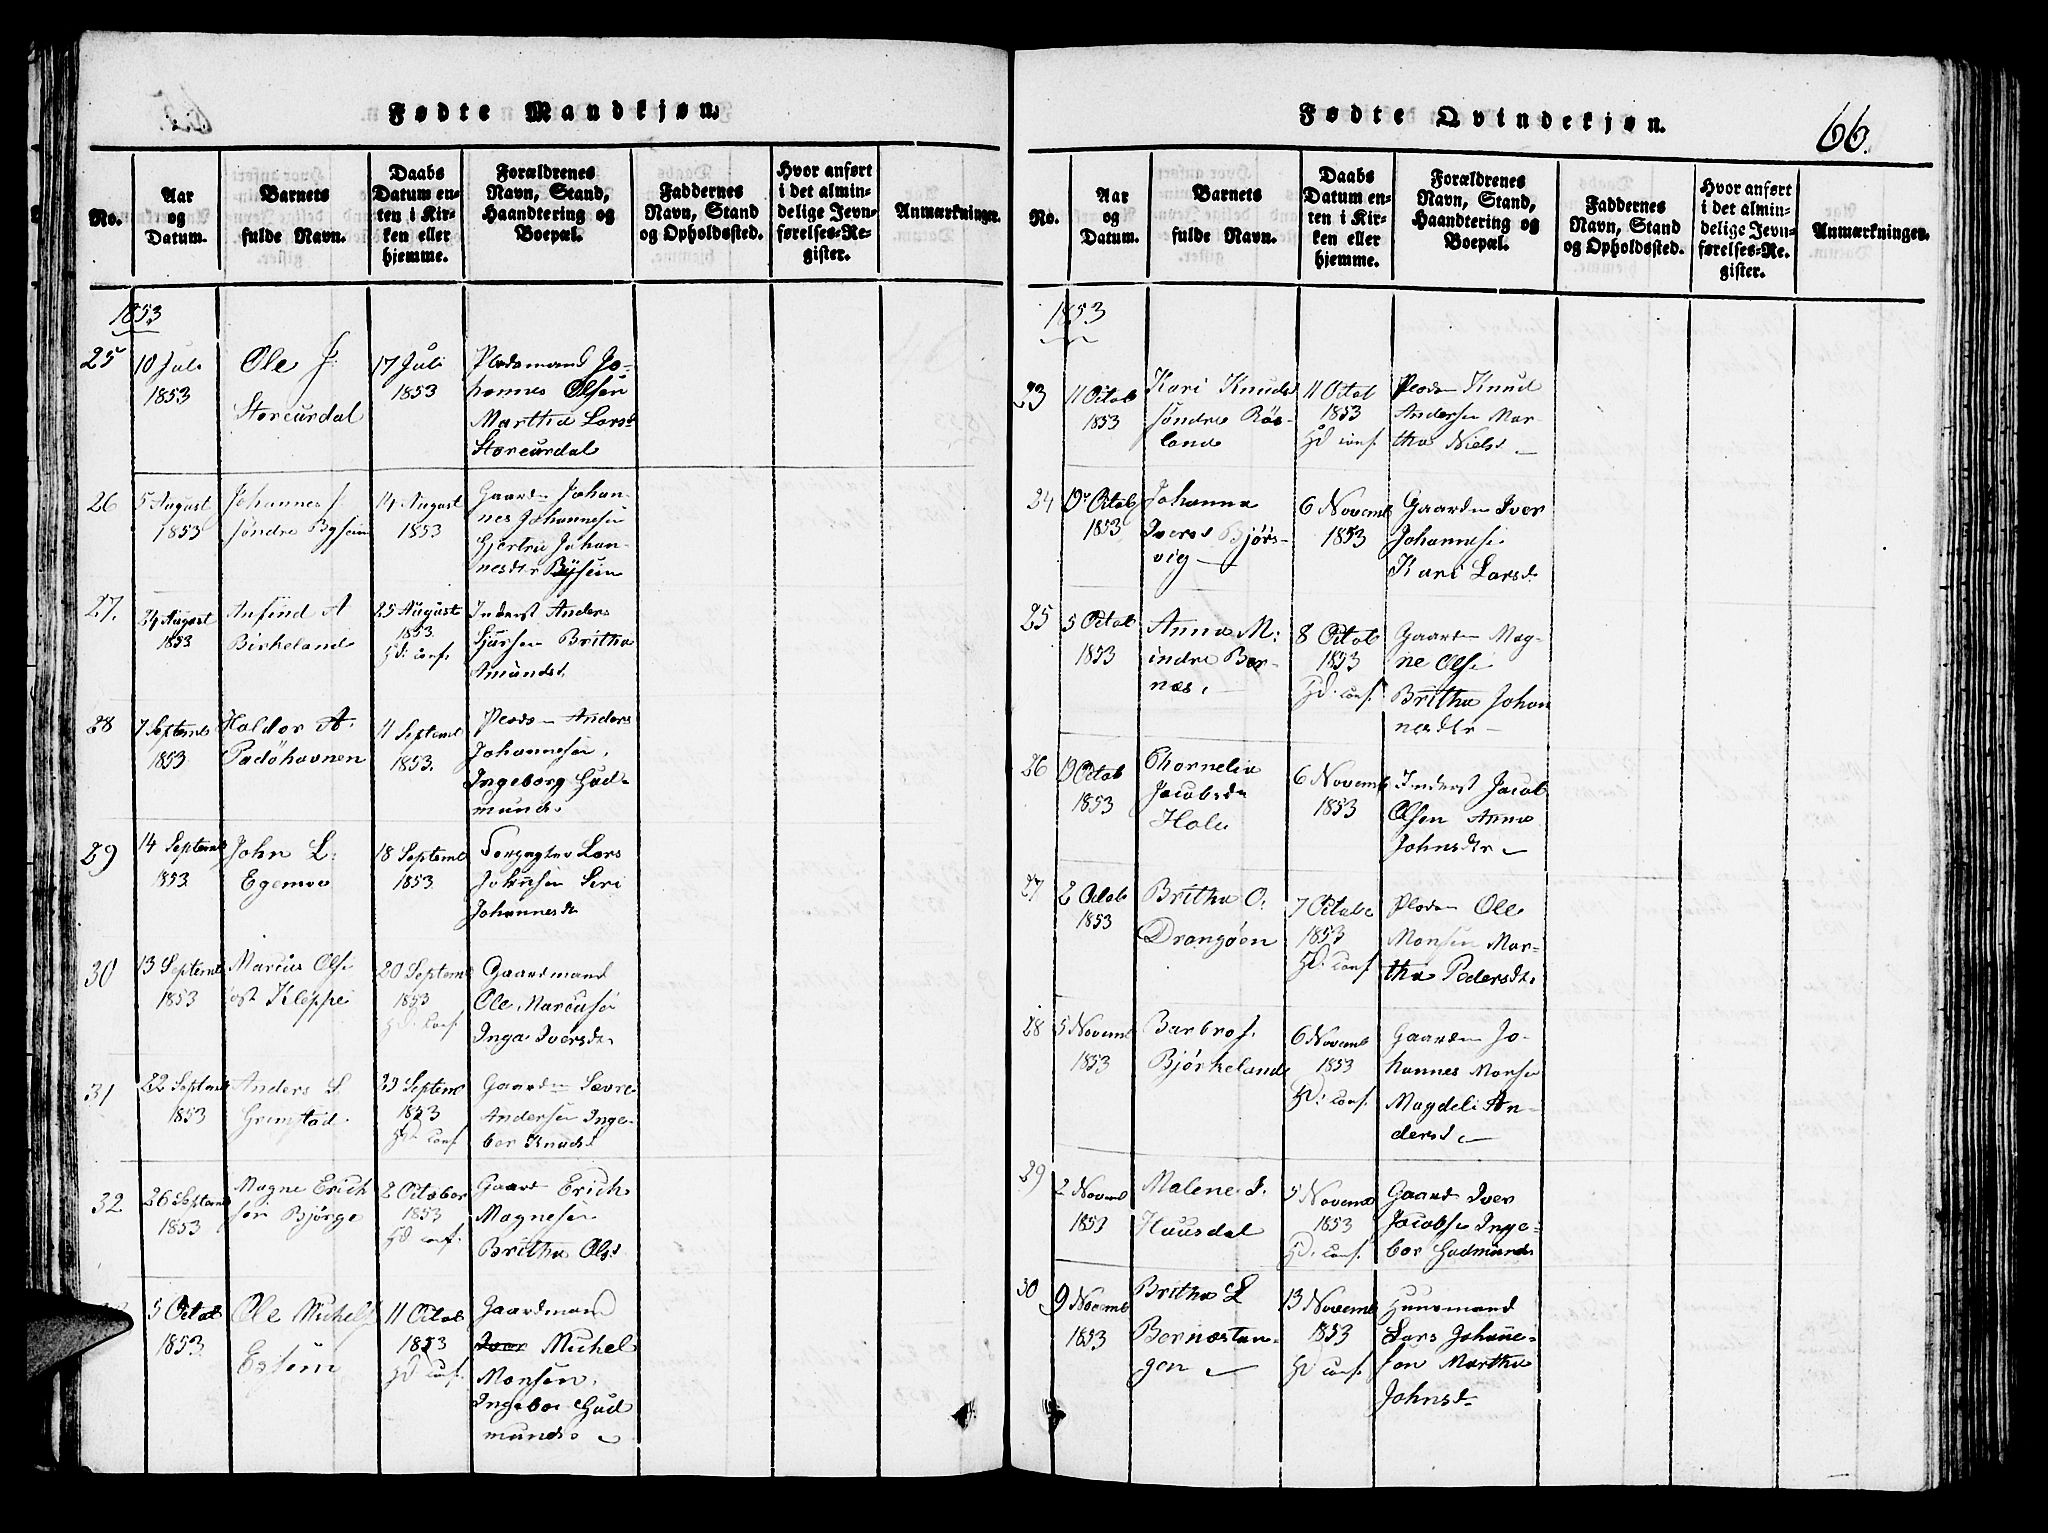 Fødte Mandkjøn.
No.
Aar
og
Datum.
Barnets
fulde Navn.
Daabs
Datum en-
ten i Kir-
ken eller
hjemme.
Forældrenes
Navn, Stand,
Haandtering og
Boepæl.
Faddernes
Navn, Stand
og Opholdssted.
Hvor anført
i det almin-
delige Jevn-
førelses-Re-
gister.
Anmærkninger.
1853
25
10 Juli
1853
Ole J:
Storeurdal
17 Juli
1853
Pladsmand Jo-
hannes Olsen
Martha Larsd
Storeurdal
26
5 August
1853
Johannes J.
søndre Bysem
14 August
1853
Gaardm Johan-
nes Johannesen
Gjertru Johan-
nesdtr Bysem
27.
24 August
1853
Anfind A
Birkeland
25 August
1853
Hd: conf.
Inderst Anders
Sjursen Britha
Amundsd.
28
7 Septemb
1853
Haldor A.
Padøhavnen
11 Septemb
1853.
Pladsm Anders
Johannesen.
Ingeborg Gud-
mundsd
29
14 Septemb
1853
John L:
Egemoe
18 Septemb
1853
Forpagter Lars
Johnsen Seri
Johannesdr
30
13 Septemb
1853
Marcus Olse
Kleppe
20 Septemb
1853
Hd: conf.
Gaardmand
Ole Marcuse
Inga Iversdr
31
22 Septemb
1853
Anders S.
Grimstad.
29 Septemb
1853
Hd: conf
Gaardm Sævre
Andersen Inge-
bor Knudsd
32
26 Septemb
1853
Magne Erich
sen Bjørge
2 October
1853
Hd conf.
Gaard Erich
Magnesen
Britha Olsd
5 Octob
1853.
Ole Michels
11 Octob
1853
Hd conf.
Gaardmand
Iver Michel
Monsen.
Ingebor Gud
mundsd
Fødte Qvindekjøn.
66.
No.
Aar
og
Datum.
Barnets
fulde Navn.
Daabs
Datum en-
ten i Kir-
ken eller
hjemme.
Forældrenes
Navn, Stand,
Haandtering og
Boepæl.
Faddernes
Navn, Stand
og Opholdssted.
Hvor anført
i det almin-
delige Jevn-
førelses-Re-
gister.
Anmærkninger.
1853
23
11 Octob
1853
Kari Knuds
søndre Rös-
land
11 Octob
1853
Hd conf.
Pladsm Knud
Andersen Mar-
tha Nielsd
24
Octob
1853
Johanna
Iversd Bjørs-
vig
6 Novemb
1853
Gaardm Iver
Johannesen
Kari Larsd
25
5 Octob
1853
Anna M:
indre Ber-
næs.
8 Octob
1853
Hd. conf.
Gaardm Mag-
ne Olse
Britha Johan
nesdtr
26
Octob
1853
Chornelia
Jacobsdr
Hole
6 Novemb
1853
Inderst Jacob
Olsen Anna
Johnsdtr
27
2 Octob
1853
Britha O.
Drangøen
7 Octob
1853
Hd: conf.
Pladsm Ole
Monsen Mar-
tha Pedersdtr
28
5 Novemb
1853
Barbro J.
Bjørkeland
6 Novemb
1853
Hd: conf.
Gaardm Jo-
hannes Monse
Magdeli An-
dersd
29
2 Novemb
1853
Malene I.
Huusdal
5 Novemb
1853
Hd. conf.
Gaard Iver
Jacobse Inge-
bor Gudmunds
30
9 Novemb
1853
Britha L
Bernæstan-
gen
13 Novemb
1853
Hd conf.
Huusmand
Lars Johanne-
sen Martha
Johnsdr